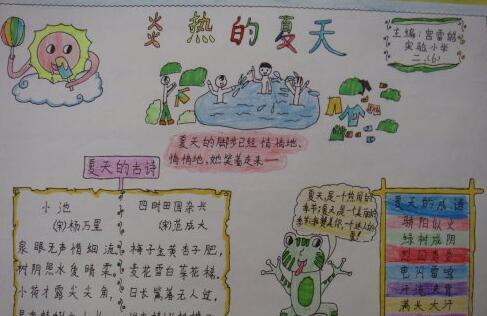 炎热的夏天
主编:宫雷皓
实验小学
二.(6)
夏天的脚步已经悄悄地、
悄悄地,她笑着走来——
夏天的古诗
小池
(宋)杨万里
泉眼无声惜细流
树阴照水爱晴柔
小荷才露尖尖角
四时田园杂兴
(宋)范成大
梅子金黄杏子肥,
麦花雪白菜花稀,
日长篱落无人过,
夏天,是一个热闹的
季节;夏天,是一个美丽的
夏天的成语
骄阳似火
绿树成阴
烈日炎炎
电闪雷鸣
汗流浃背
满头大汗